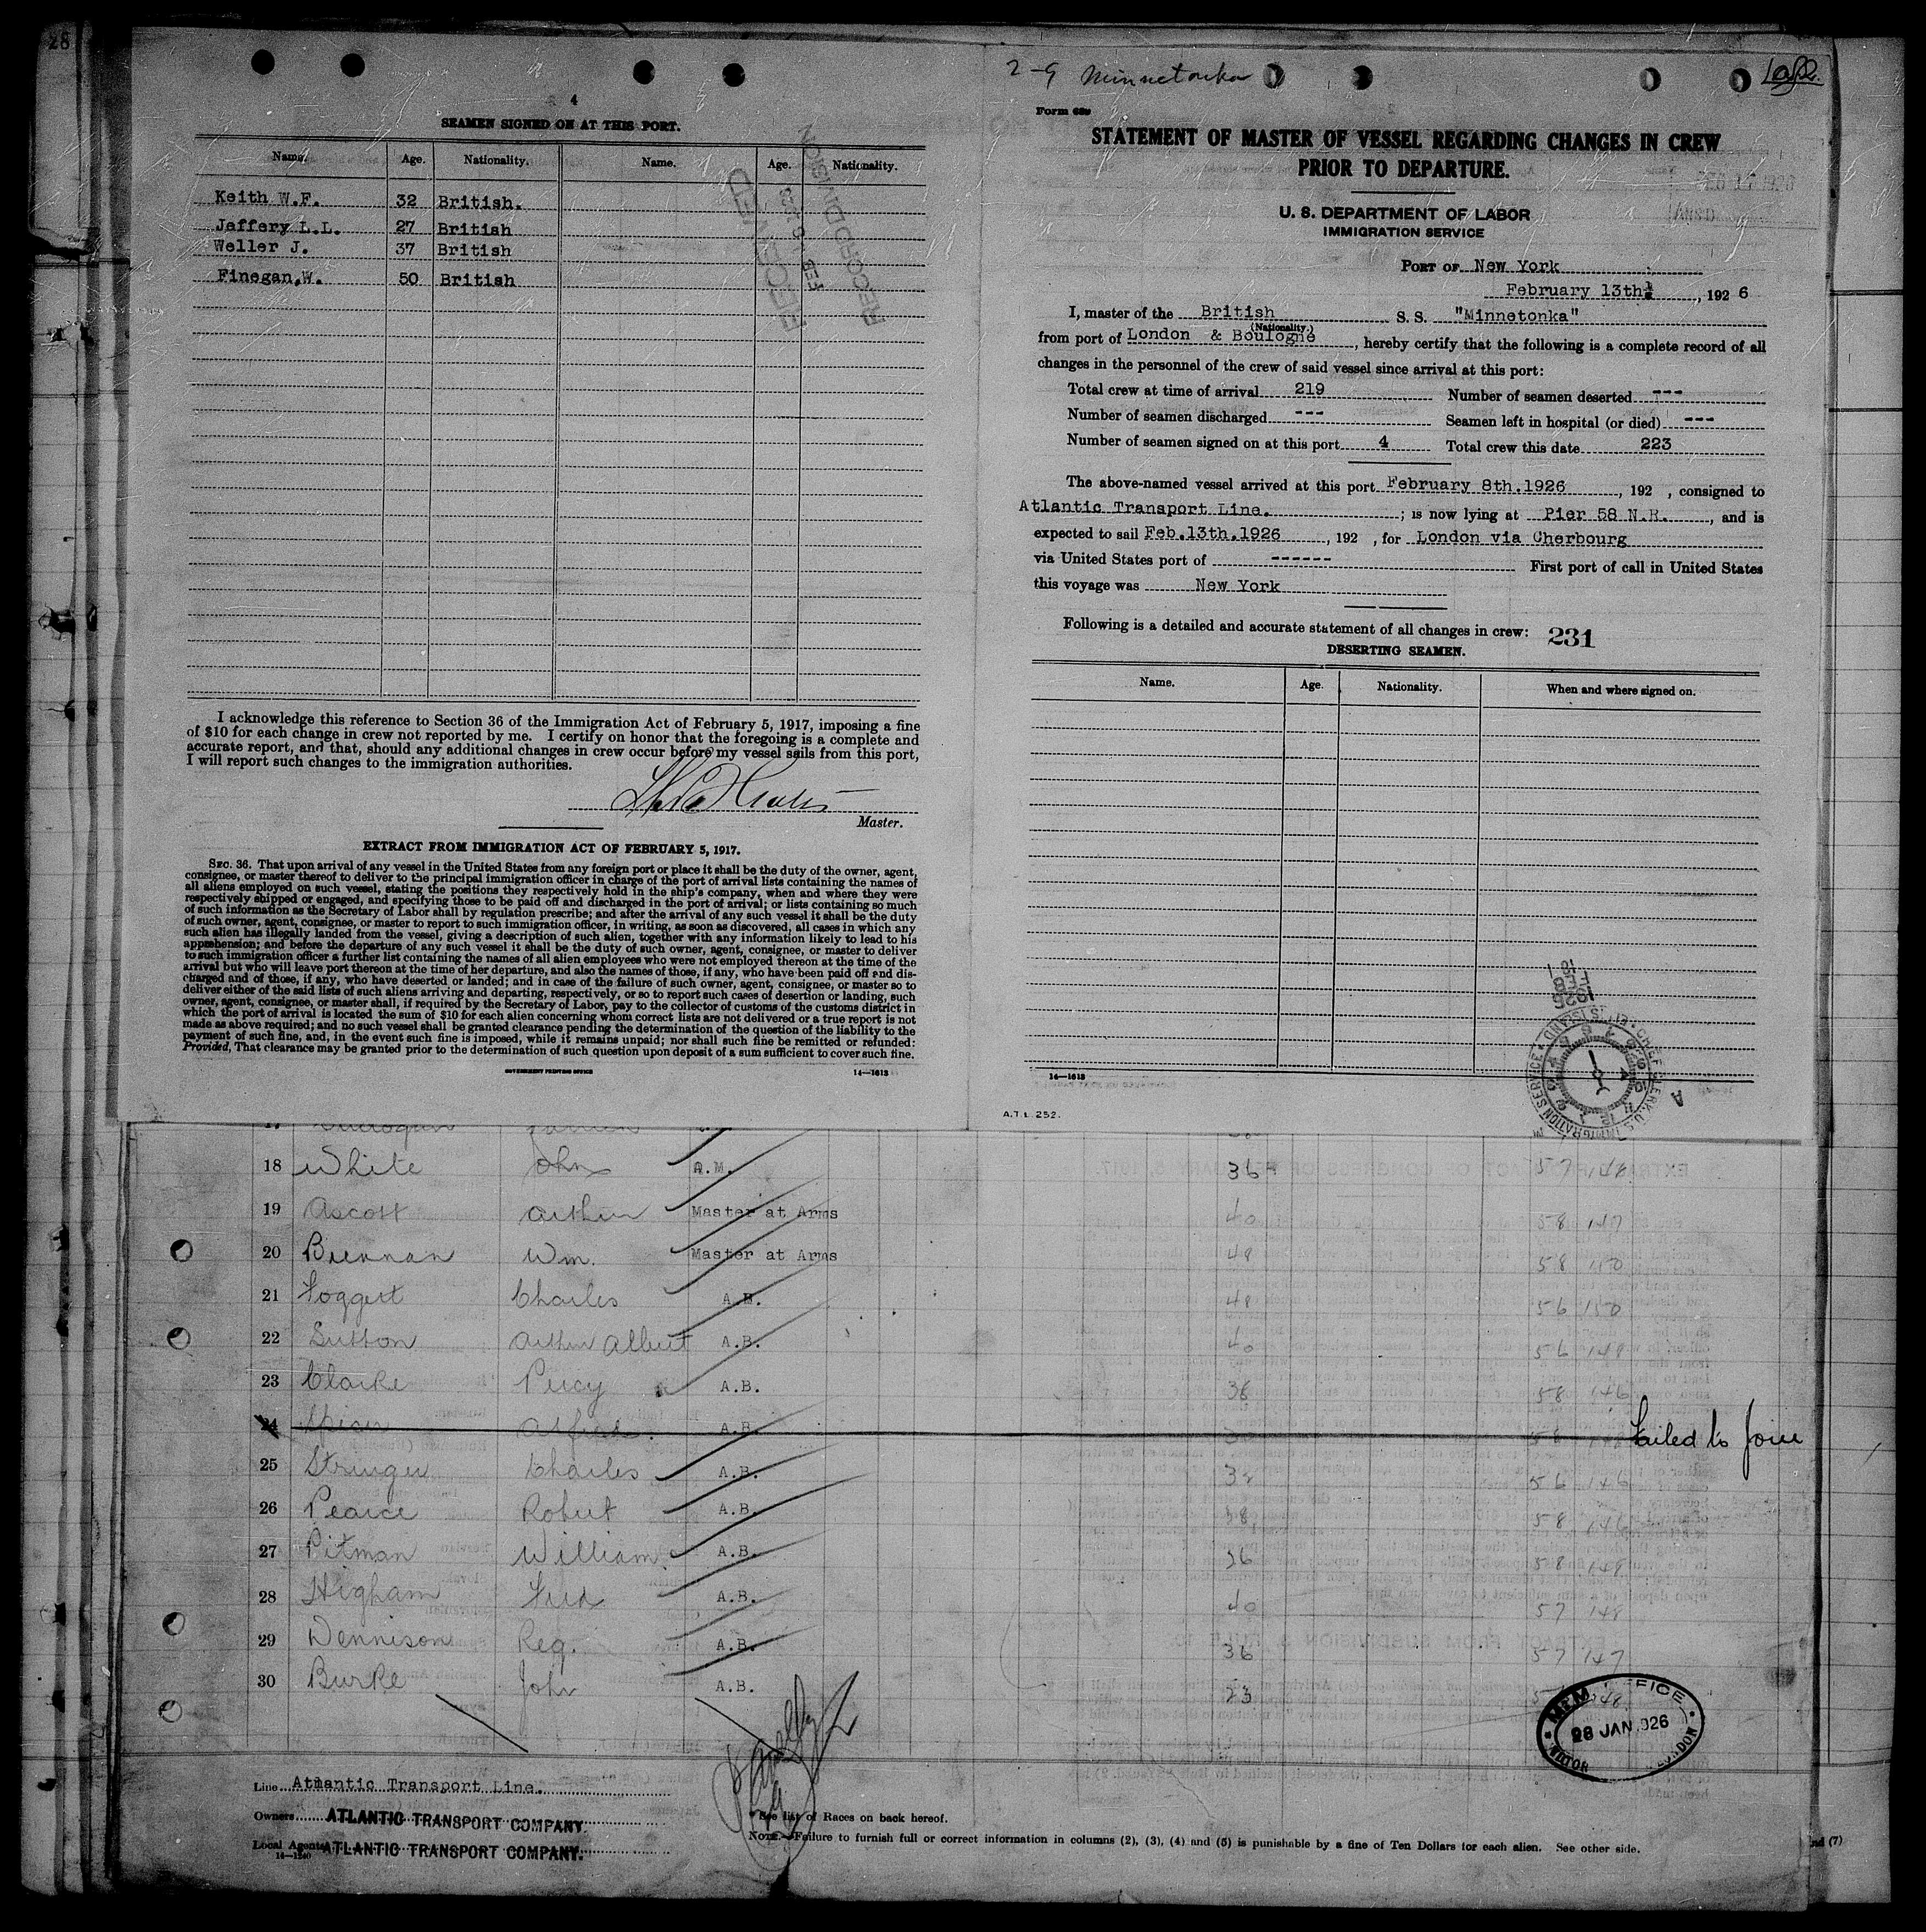 28
4
SEAMEN SIGNED ON AT THIS PORT.
Name. Age. Nationality. Name. Age. Nationality.
Keith W.F. 32 British.
Jeffery L.L. 27 British
Weller J. 37 British
Finegan,W. 50 British
RECEIVED
FEB
RECORD DIVISION
I acknowledge this reference to Section 36 of the Immigration Act of February 5, 1917, imposing a fine
of $10 for each change in crew not reported by me. I certify on honor that the foregoing is a complete and
accurate report, and that, should any additional changes in crew occur before my vessel sails from this port,
I will report such changes to the immigration authorities.
Master.
EXTRACT FROM IMMIGRATION ACT OF FEBRUARY 5, 1917.
SEC. 36. That upon arrival of any vessel in the United States from any foreign port or place it shall be the duty of the owner, agent,
consignee, or master thereof to deliver to the principal immigration officer in charge of the port of arrival lists containing the names of
all aliens employed on such vessel, stating the positions they respectively hold in the ship's company, when and where they were
respectively shipped or engaged, and specifying those to be paid off and discharged in the port of arrival; or lists containing so much
of such information as the Secretary of Labor shall by regulation prescribe; and after the arrival of any such vessel it shall be the duty
of such owner, agent, consignee, or master to report to such immigration officer, in writing, as soon as discovered, all cases in which any
such alien has illegally landed from the vessel, giving a description of such alien, together with any information likely to lead to his
apprehension; and before the departure of any such vessel it shall be the duty of such owner, agent, consignee, or master to deliver
to such immigration officer a further list containing the names of all alien employees who were not employed thereon at the time of the
arrival but who will leave port thereon at the time of her departure, and also the names of those, if any, who have been paid off and dis-
charged and of those, if any, who have deserted or landed; and in case of the failure of such owner, agent, consignee, or master so to
deliver either of the said lists of such aliens arriving and departing, respectively, or so to report such cases of desertion or landing, such
owner, agent, consignee, or master shall, if required by the Secretary of Labor, pay to the collector of customs of the customs district in
which the port of arrival is located the sum of $10 for each alien concerning whom correct lists are not delivered or a true report is not
made as above required; and no such vessel shall be granted clearance pending the determination of the question of the liability to the
payment of such fine, and, in the event such fine is imposed, while it remains unpaid; nor shall such fine be remitted or refunded:
Provided, That clearance may be granted prior to the determination of such question upon deposit of a sum sufficient to cover such fine.
GOVERNMENT PRINTING OFFICE 14—1613
2-9 Minnetonka
Form 689
STATEMENT OF MASTER OF VESSEL REGARDING CHANGES IN CREW
PRIOR TO DEPARTURE.
U. S. DEPARTMENT OF LABOR
IMMIGRATION SERVICE
PORT OF New York
February 13th, 1926
I, master of the British S. S. "Minnetonka"
(Nationality.)
from port of London & Boulogne, hereby certify that the following is a complete record of all
changes in the personnel of the crew of said vessel since arrival at this port:
Total crew at time of arrival 219 Number of seamen deserted ---
Number of seamen discharged --- Seamen left in hospital (or died) ---
Number of seamen signed on at this port 4 Total crew this date 223
The above-named vessel arrived at this port February 8th.1926, 192 , consigned to
Atlantic Transport Line. ; is now lying at Pier 58 N.R., and is
expected to sail Feb.13th.1926, 192 , for London via Cherbourg
via United States port of ------ First port of call in United States
this voyage was New York
Following is a detailed and accurate statement of all changes in crew: 231
DESERTING SEAMEN.
Name. Age. Nationality. When and where signed on.
1926
FEB
CHIEF CLERK, U.S. IMMIGRATION SERVICE ELLIS ISLAND
14—1613
A.T.L. 252.
18 White John A.M. 36 57 148
19 Ascott Arthur Master at Arms 40 58 147
20 Brennan Wm. Master at Arms 48 58 150
21 Foggert Charles A.B. 48 56 150
22 Sutton Arthur Albert A.B. 40 56 149
23 Clarke Percy A.B. 38 58 146
24 Spicer Alfred. A.B. Failed to Join
25 Stringer Charles A.B. 32 56 146
26 Pearce Robert A.B. 38 58 146
27 Pitman William A.B. 36 58 149
28 Higham Fred A.B. 40 57 148
29 Dennison Reg. A.B. 36 57 147
30 Burke John A.B. 23 148
28 JAN 1926
LONDON
Line Atlantic Transport Line.
Owners ATLANTIC TRANSPORT COMPANY.
Local Agents ATLANTIC TRANSPORT COMPANY.
14—1240
* See list of Races on back hereof.
NOTE.—Failure to furnish full or correct information in columns (2), (3), (4) and (5) is punishable by a fine of Ten Dollars for each alien. See other side.
nd (7)